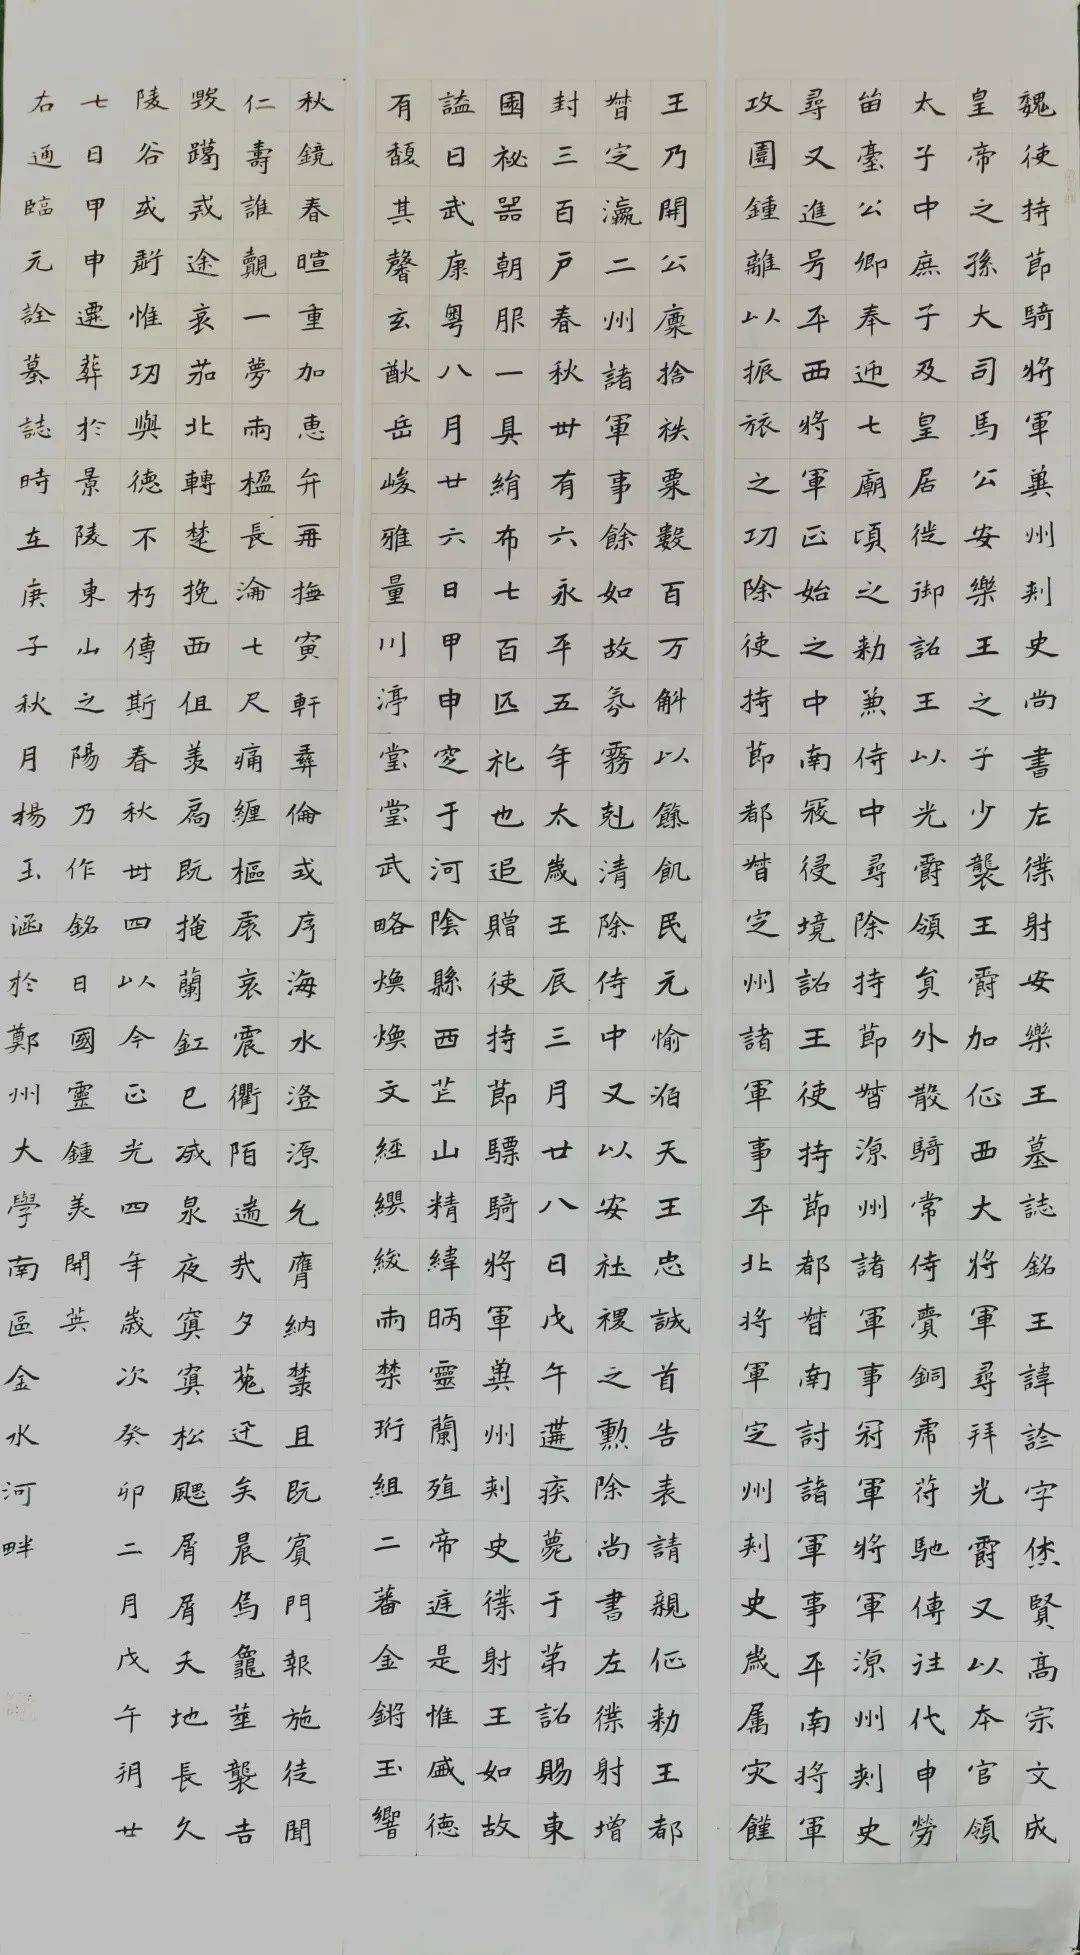 魏使持節騎將軍冀州刺史尚書左僕射安樂王墓誌銘王諱診字休賢高宗文成
皇帝之孫大司馬公安樂王之子少襲王爵加征西大將軍尋拜光爵又以本官領
太子中庶子及皇居徙御詔王以光爵領員外散騎常侍賫銅虎苻馳傳往代申勞
笛臺公卿奉迎七廟頃之勅兼侍中尋除持節督涼州諸軍事冠軍將軍涼州刺史
尋又進号平西將軍正始之中南寇侵境詔王使持節都督南討諸軍事平南將軍
攻圍鍾離以振旅之功除使持節都督定州諸軍事平北將軍定州刺史歲属灾饉
王乃開公廩捨秩粟數百万斛以餼飢民元愉滔天王忠誠首告表請親征勅王都
督定瀛二州諸軍事餘如故氛霧剋清除侍中又以安社稷之勳除尚書左僕射增
封三百戶春秋卅有六永平五年太歲壬辰三月廿八日戊午遘疾薨于第詔賜東
園秘器朝服一具絹布七百匹礼也追贈使持節驃騎將軍冀州刺史僕射王如故
謚曰武康粤八月廿六日甲申窆于河陰縣西芒山精緯昞靈蘭殖帝庭是惟盛德
有馥其馨玄猷岳峻雅量川渟堂堂武略煥煥文經纓紱兩禁珩組二蕃金鏘玉響
秋鏡春暄重加惠弁再撫寅軒彝倫或序海水澄源允膺納麓且既賓門報施徒聞
仁壽誰覿一夢兩楹長淪七尺痛纏樞扆哀震衢陌遄哉夕菟迅矣晨烏龜筮襲吉
毀躅戎途哀茄北轉楚挽西徂羨扃既掩蘭釭已滅泉夜寞寞松颸屑屑天地長久
陵谷或虧惟功與德不朽傳斯春秋卅四以今正光四年歲次癸卯二月戊午朔廿
七日甲申遷葬於景陵東山之陽乃作銘曰國靈鍾美開英
右通臨元詮墓誌時在庚子秋月楊玉涵於鄭州大學南區金水河畔